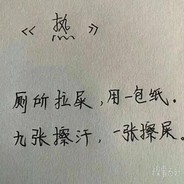 《热》
厕所拉屎,用一包纸.
九张擦汗,一张擦屎。